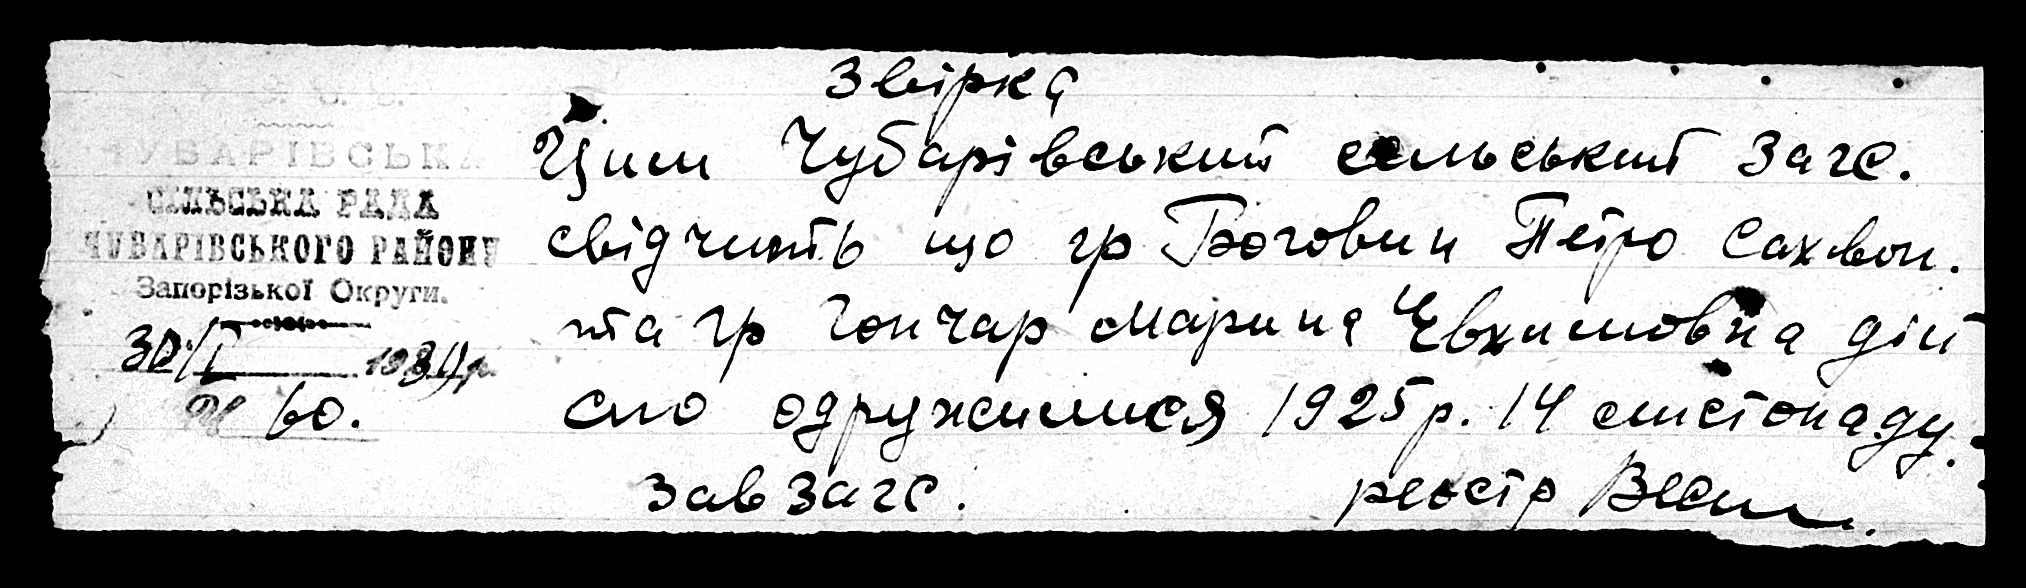 Звірка
ЧУБАРІВСЬКА
СІЛЬСЬКА РАДА
ЧУБАРІВСЬКОГО РАЙОНУ
Запорізької Округи.
1930р.
№ 60.
Цим Чубарівський сельський Загс.
свідчить що гр Боговин Петро Сахвон.
та гр Гончар Марина Євхимовна дій
сно одружилися 1925р. 14 листопаду.
Зав Загс. реєстр